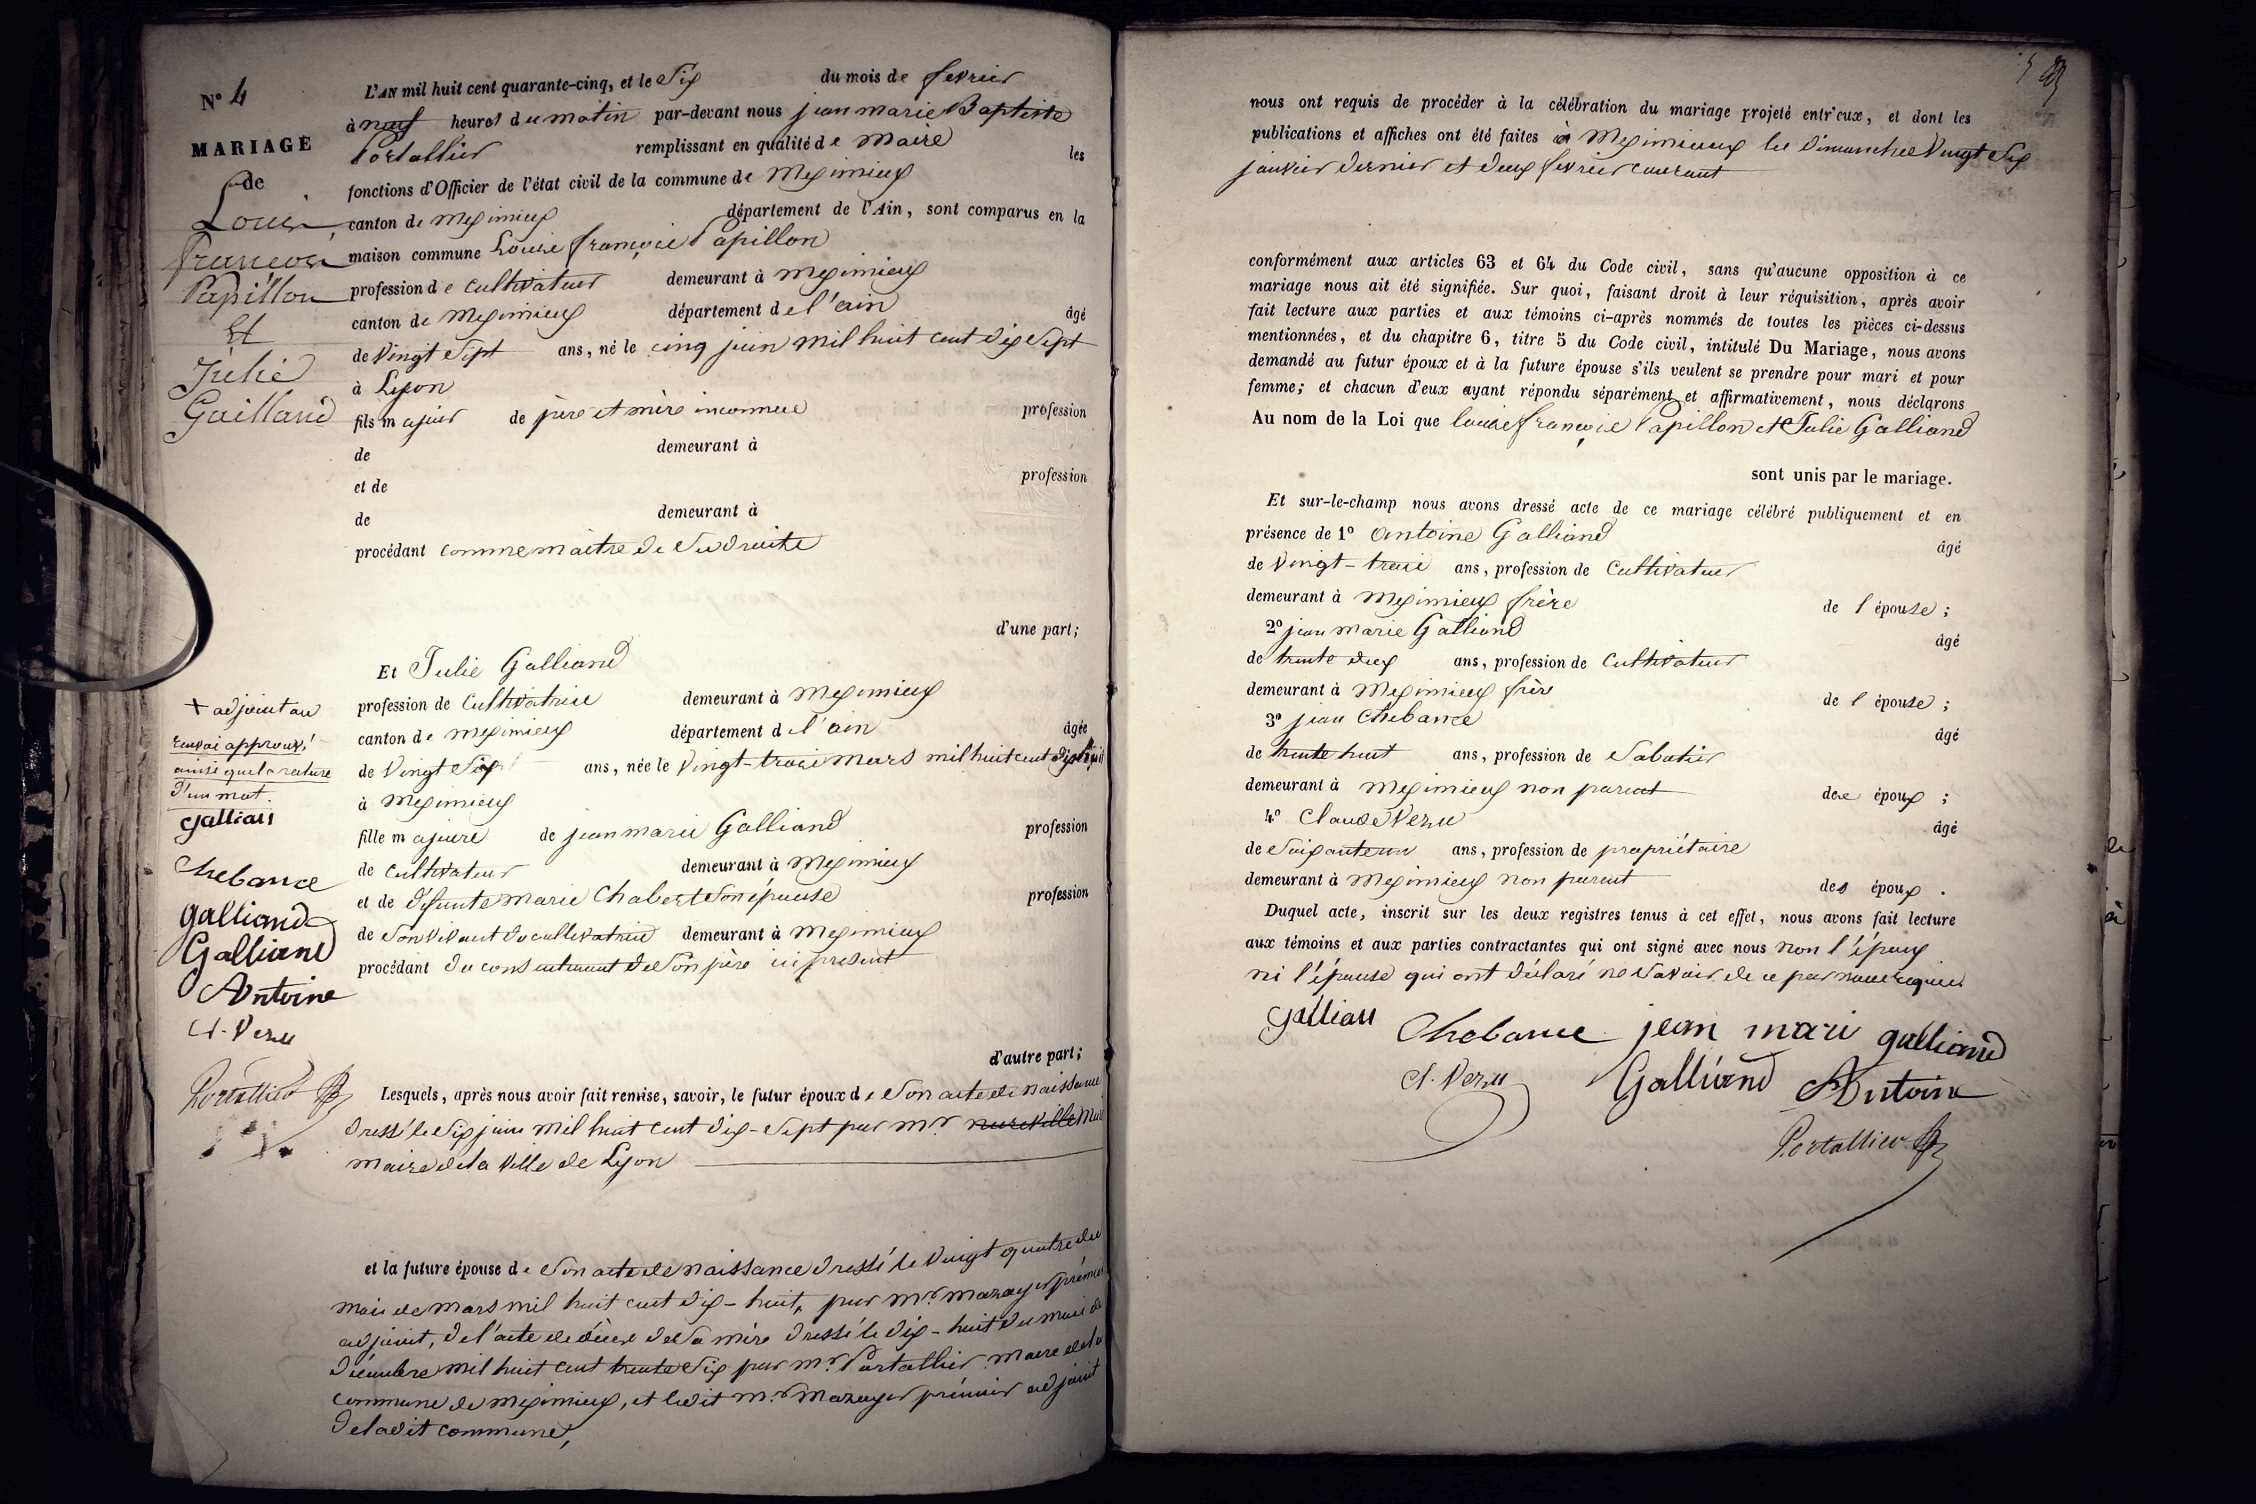 N° 4
MARIAGE
de
Louis
françois
Papillon
Et
Julie
Galliand
L'AN mil huit cent quarante-cinq, et le Six du mois de fevrier
à neuf heures du matin par-devant nous jean marie Baptiste
Portallier remplissant en qualité de Maire les
fonctions d'Officier de l'état civil de la commune de Meximieux
canton de Meximieux département de l'Ain, sont comparus en la
maison commune Louis françois Papillon
profession de cultivateur demeurant à Meximieux
canton de Meximieux département de l'ain âgé
de Vingt Sept ans, né le cinq juin mil huit cent dix Sept
à Lyon
fils majeur de père et mère inconnus profession
de demeurant à
et de profession
de demeurant à
procédant comme maitre de Ses droits
d'une part;
Et Julie Galliand
profession de Cultivatrice demeurant à Meximieux
canton de Meximieux département de l'ain âgée
de Vingt Six ans, née le Vingt-trois Mars mil huit cent dix huit
à Meximieux
fille majeure de jean marie Galliand profession
de cultivateur demeurant à Meximieux
et de défunte Marie Chabert Son épouse profession
de Son Vivant cultivatrice demeurant à Meximieux
procédant du consentement de Son père ici présent
d'autre part;
+ adjoint au
renvoi approuvé
ainsi que la rature
d'un mot.
galliau
Chebance
galliand
Galliand
Antoine
Cl. Veru
Portallier
Lesquels, après nous avoir fait remise, savoir, le futur époux de Son acte de naissance
dressé le Six juin mil huit cent dix-Sept par Mr
maire de la Ville de Lyon
et la future épouse de Son acte de naissance dressé le Vingt quatre du
mois de Mars mil huit cent dix-huit, par Mr. Mazoyer prémier
adjoint, de l'acte de décès de Sa mère dressé le dix-huit du mois de
décembre mil huit cent trente Six par Mr. Portallier Maire de la
commune de Meximieux, et ledit Mr. Mazoyer prémier adjoint
de ladit commune,
nous ont requis de procéder à la célébration du mariage projeté entr'eux, et dont les
publications et affiches ont été faites à Meximieux les dimanches Vingt Six
janvier dernier et deux fevrier courant
conformément aux articles 63 et 64 du Code civil, sans qu'aucune opposition à ce
mariage nous ait été signifiée. Sur quoi, faisant droit à leur réquisition, après avoir
fait lecture aux parties et aux témoins ci-après nommés de toutes les pièces ci-dessus
mentionnées, et du chapitre 6, titre 5 du Code civil, intitulé Du Mariage, nous avons
demandé au futur époux et à la future épouse s'ils veulent se prendre pour mari et pour
femme; et chacun d'eux ayant répondu séparément et affirmativement, nous déclarons
Au nom de la Loi que louis françois Papillon et Julie Galliand
sont unis par le mariage.
Et sur-le-champ nous avons dressé acte de ce mariage célébré publiquement et en
présence de 1° Antoine Galliand âgé
de Vingt-trois ans, profession de Cultivateur
demeurant à Meximieux frère de l'épouse;
2° jean marie Galliand âgé
de trente deux ans, profession de Cultivateur
demeurant à Meximieux frère de l'épouse;
3° jean Chebance âgé
de trente huit ans, profession de Sabotier
demeurant à Meximieux non parent des époux;
4° Claude Veru âgé
de Soixante un ans, profession de propriétaire
demeurant à Meximieux non parent des époux.
Duquel acte, inscrit sur les deux registres tenus à cet effet, nous avons fait lecture
aux témoins et aux parties contractantes qui ont signé avec nous non l'époux
ni l'épouse qui ont déclaré ne Savoir de ce par nous requis
galliau Chebance jean mari galliand
Cl. Veru Galliand Antoine
Portallier